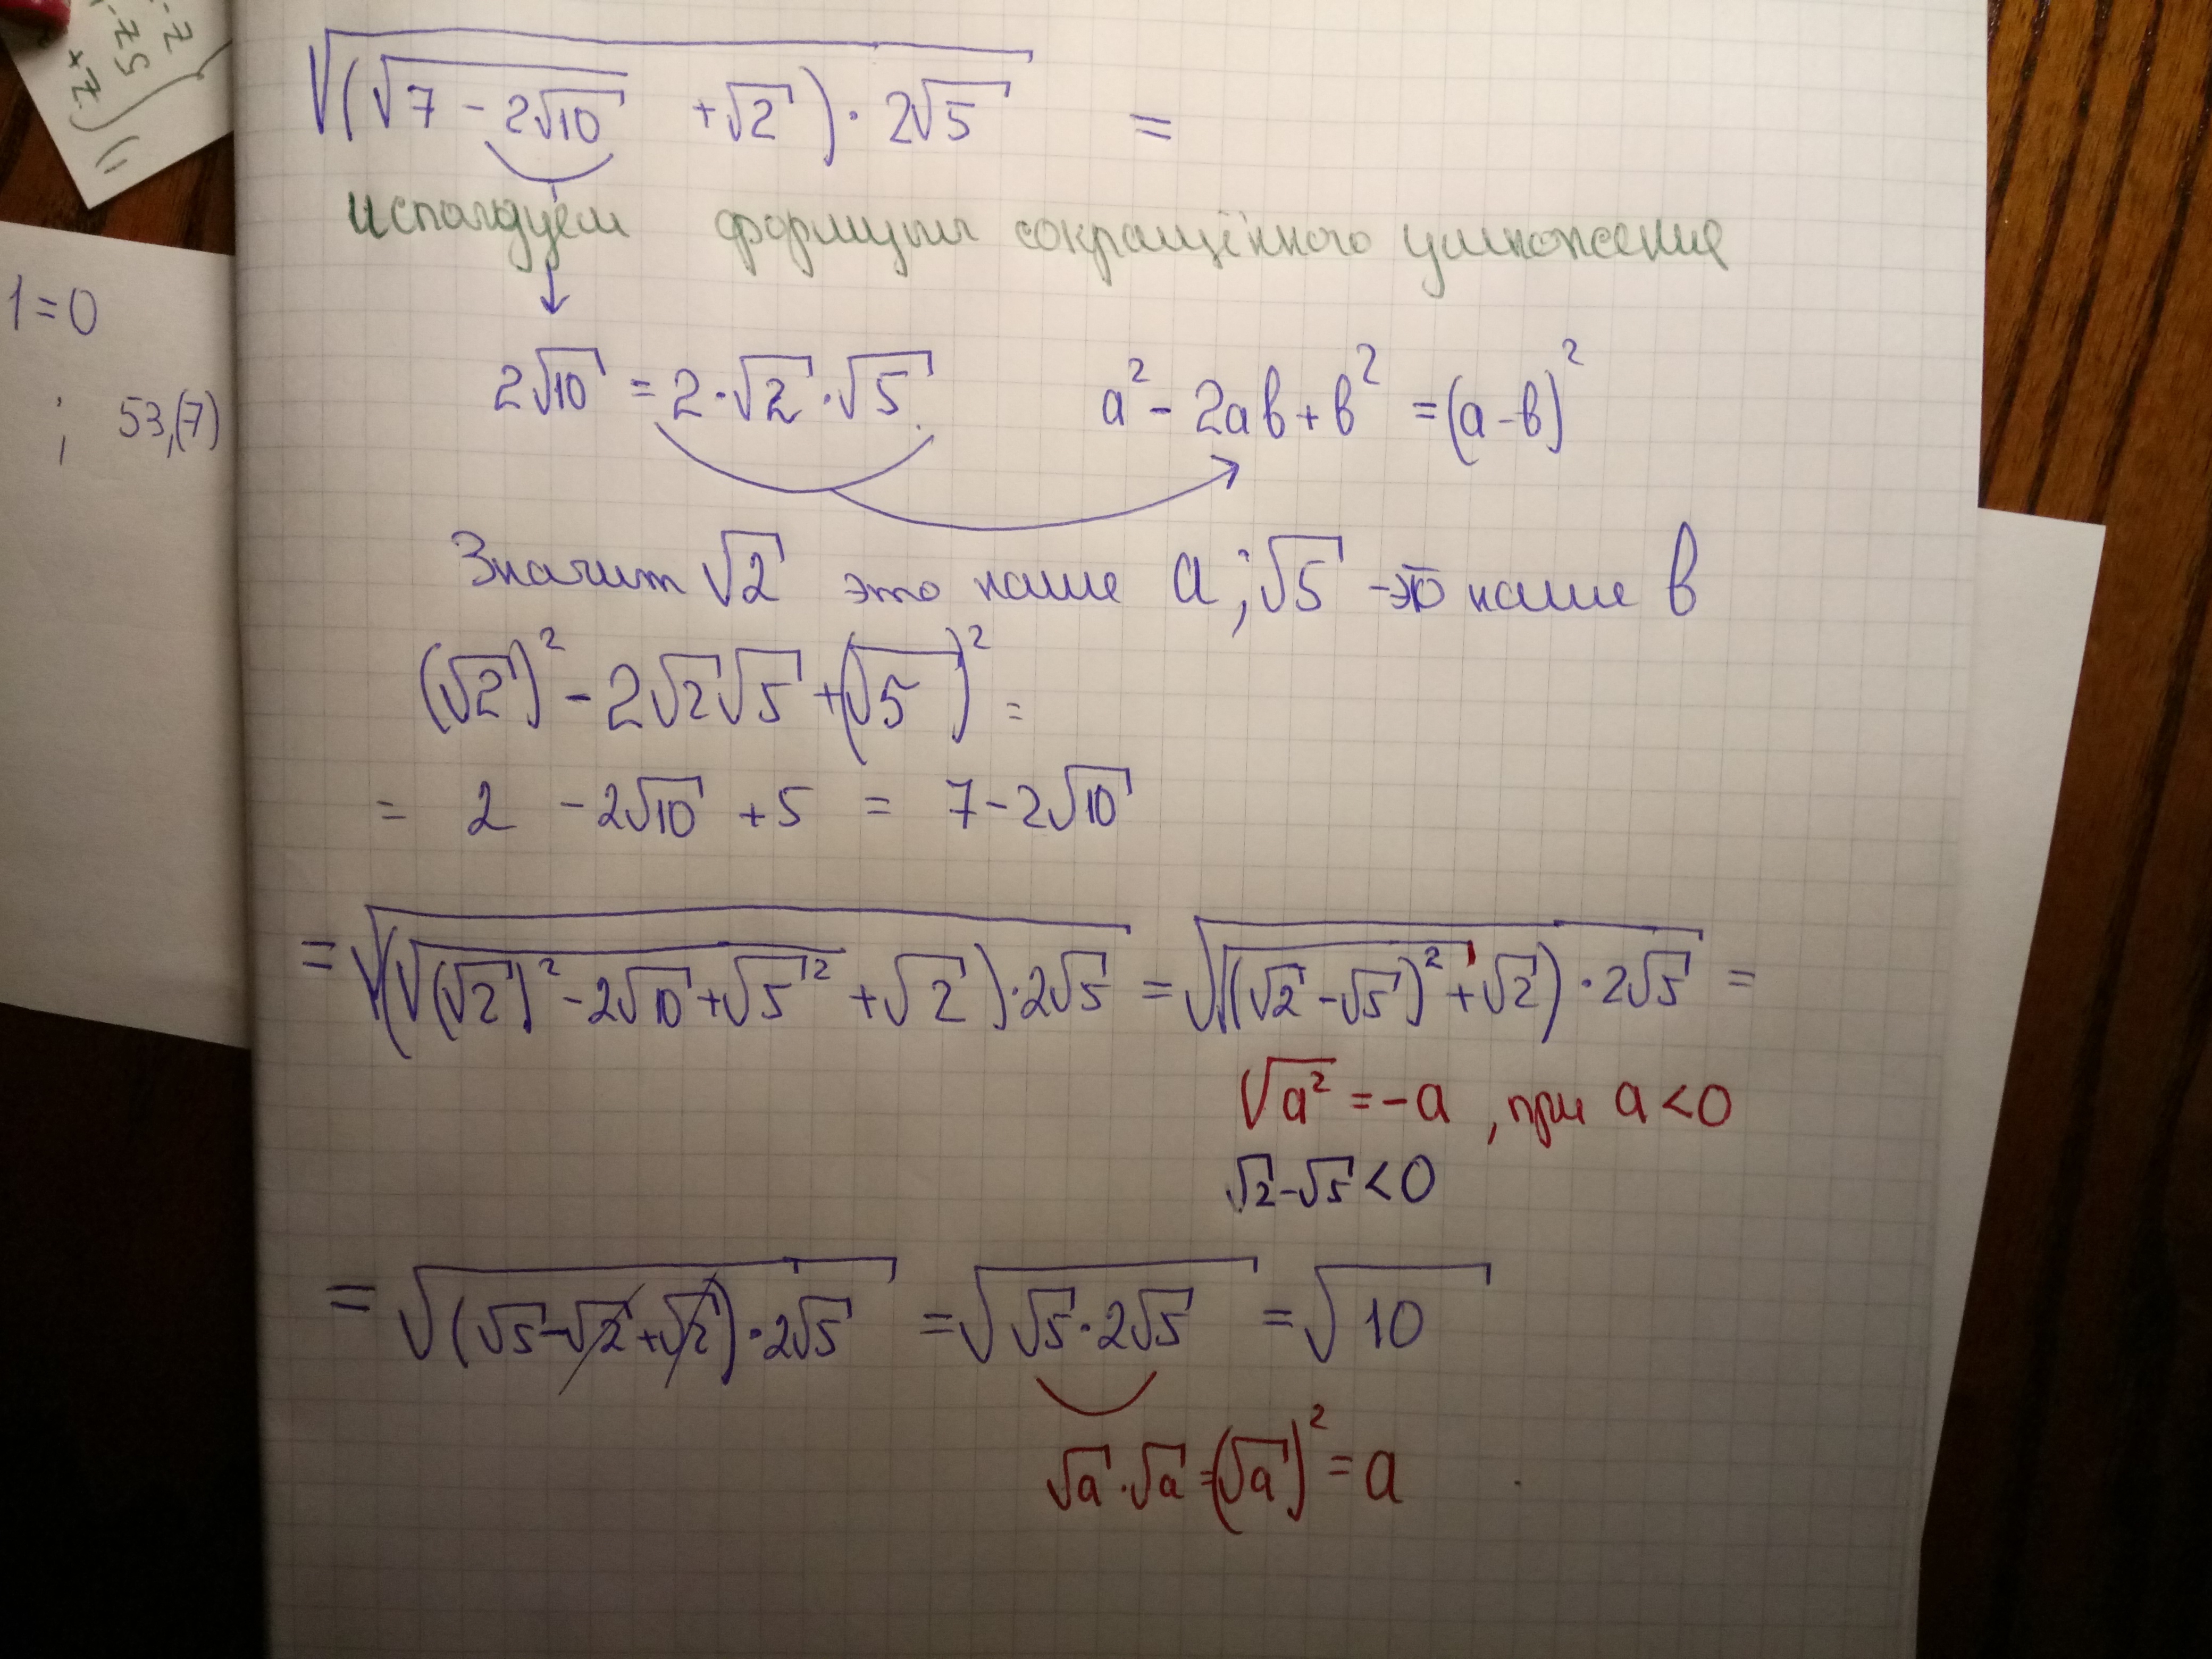 √((√(7 - 2√10) + √2) · 2√5) =
используем формулы сокращённого умножения
2√10 = 2·√2·√5 a² - 2ab + b² = (a - b)²
Значит √2 это наше a; √5 - это наше b
(√2)² - 2√2√5 + (√5)² =
= 2 - 2√10 + 5 = 7 - 2√10
= √((√((√2)² - 2√10 + √5²) + √2) · 2√5) = √((√((√2 - √5)²) + √2) · 2√5) =
√a² = -a, при a < 0
√2 - √5 < 0
= √((√5 - √2 + √2) · 2√5) = √(√5 · 2√5) = √10
√a · √a = (√a)² = a
1 = 0
; 53,(7)